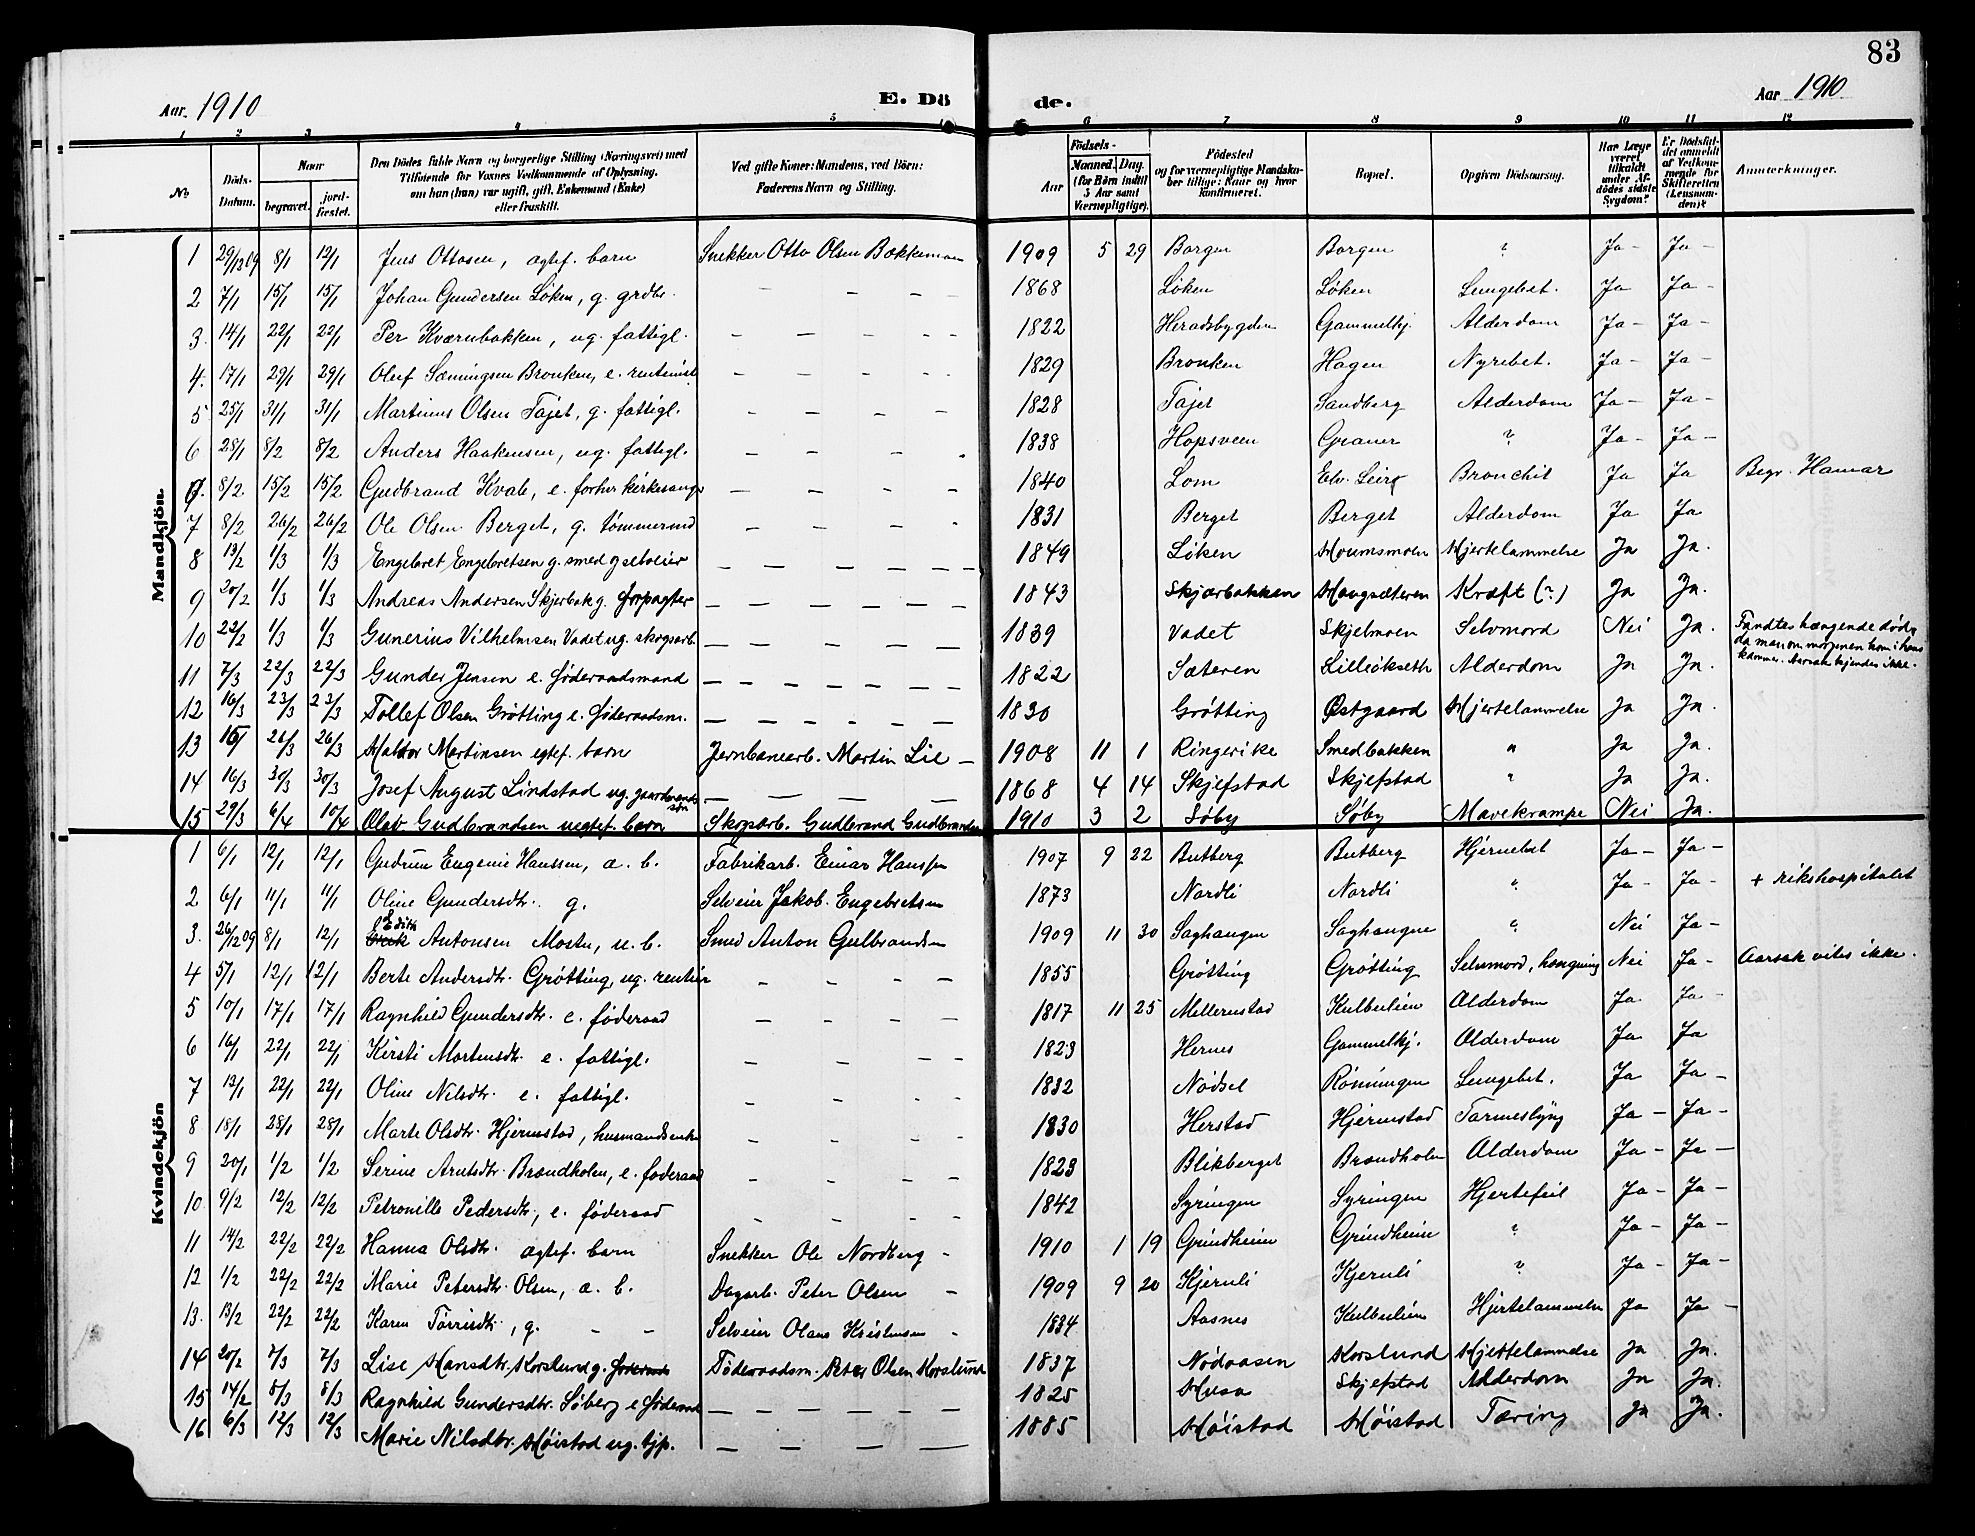 83
Aar. 1910
E. Dö
de.
Aar 1910
1 2 3 4 5 6 7 8 9 10 11 12
No
Döds-Datum.
Naar
begravet.
jordfæstet.
Den Dödes fulde Navn og borgerlige Stilling (Næringsvei) med
Tilføiende for Voxnes Vedkommende af Oplysning,
om hun (han) var ugift, gift, Enkemand (Enke)
eller fraskilt.
Ved gifte Koner: Mandens, ved Börn:
Faderens Navn og Stilling.
Födsels-
Aar
Maaned. Dag.
(for Börn indtil 5 Aar samt Værnepligtige).
Födested
og for værnepligtige Mandskaber tillige: Naar og hvor konfirmeret.
Bopæl.
Opgiven Dödsaarsag.
Har Læge været tilkaldt under Afdödes sidste Sygdom?
Er Dödsfaldet anmeldt af Vedkommende for Skifteretten (Lensmanden)?
Anmerkninger.
Mandkjön.
1 29/12 09 8/1 12/1 Jens Ottosen, ægtef. barn Snekker Otto Olsen Bakkemoen 1909 5 29 Borgen Borgen ? Ja – Ja –
2 7/1 15/1 15/1 Johan Gundersen Løken, g. grdbr. – – – – 1868 Løken Løken Lungebet. Ja Ja –
3. 14/1 22/1 22/1 Per Kværnbakken, ug. fattigl. – – – – 1822 Heradsbygden Gammelhj. Alderdom Ja – Ja –
4. 17/1 29/1 29/1 Oluf Sæmingsen Bronken, e. rentenist – – – – 1829 Bronken Hagen Nyrebet. Ja – Ja –
5 25/1 31/1 31/1 Martinus Olsen Tajet, g. fattigl. – – – – 1828 Tajet Sandberg Alderdom Ja – Ja –
6 28/1 8/2 8/2 Anders Haakensen, ug. fattigl. – – – 1838 Hopsveen Graner ? Ja – Ja –
8/2 15/2 15/2 Gudbrand Kvale, e. forhv. kirkesanger – – – – 1840 Lom Elv. Leir Bronchit Ja Ja Begr. Hamar
7 8/2 26/2 26/2 Ole Olsen Berget, g. tømmermd – – – 1831 Berget Berget Alderdom Ja Ja
8 13/2 1/3 1/3 Engebret Engebretsen g. smed og selveier – – – – – 1849 Løken Moumsmoen Hjertelammelse Ja Ja.
9 20/2 1/3 1/3 Andreas Andersen Skjerbak g. forpagter – – – – – 1843 Skjærbakken Haugsæteren Kræft (?) Ja Ja.
10 22/2 1/3 1/3 Gunerius Vilhelmsen Vadet ug. skogsarb. – – – – – 1839 Vadet Skjelmoen Selvmord Nei Ja. Fandtes hængende død, da man om morgenen kom i hans kammer. Aarsak kjendes ikke.
11 7/3 22/3 22/3 Gunder Jensen e. föderaadsmand – – – – – – 1822 Sæteren Lilleøkseth Alderdom Ja Ja.
12 16/3 23/3 23/3 Tollef Olsen Grøtting e. föderaadsm. – – – – – – 1830 Grøtting Østgaard Hjertelammelse Ja Ja.
13 26/3 26/3 Martinsen egtef. barn Jernbanearb. Martin Lie – 1908 11 1 Ringerike Smedbakken " Ja Ja.
14 16/3 30/3 30/3 Josef August Lindstad ug. gaardmandssön – – – – 1868 4 14 Skjefstad Skjefstad " Ja Ja.
15 29/3 6/4 10/4 Olav Gudbrandsen uegtef. barn Skogsarb. Gudbrand Gudbrandsen 1910 3 2 Søby Søby Mavekrampe Nei Ja.
Kvindekjön
1 6/1 12/1 12/1 Gudrun Eugenie Hanssen, æ. b. Fabrikarb. Einar Hanssen 1907 9 22 Butberg Butberg Hjernebet Ja – Ja –
2 6/1 11/1 11/1 Oline Gundersdtr. g. Selveier Jakob Engebretsen 1873 Nordli Nordli " Ja – Ja – + rikshospitalet
3. 26/12 09 8/1 12/1 Edith Antonsen Mostu, u. b. Smed Anton Gulbrandsen 1909 11 30 Saghaugen Saghaugen " Nei Ja –
4 5/1 12/1 12/1 Berte Andersdtr. Grøtting, ug. rentier – – – – 1855 Grøtting Grøtting Selvmord, hængning Nei Ja – Aarsak vites ikke.
5 10/1 17/1 17/1 Ragnhild Gundersdtr. e. føderaad – – – – 1817 11 25 Millerustad Kulbulien Alderdom Ja Ja –
6 16/1 22/1 22/1 Kirsti Mortensdtr. e. fattigl. – – – – 1823 Hernes Gammelhj. Alderdom Ja Ja
7 13/1 22/1 22/1 Oline Nilsdtr. e. fattigl. – – – – 1832 Nødsel Rønningen Lungebet. Ja Ja –
8 18/1 28/1 28/1 Marte Olsdtr. Hjermstad, husmandsenke – – – – 1830 Herstad Hjermstad Tarmeslyng Ja – Ja –
9 20/1 1/2 1/2 Serine Arntsdtr. Brændholen, e. føderaad – – – – 1823 Blikberget Brændholen Alderdom Ja – Ja –
10 9/2 12/2 12/2 Petronille Pedersdtr., e. føderaad – – – – 1842 Syringen Syringen Hjertefeil Ja – Ja –
11 14/2 22/2 22/2 Hanna Olsdtr. ægtef. barn Snekker Ole Nordberg – 1910 1 19 Grindheim Grindheim ? Ja – Ja –
12 1/2 22/2 22/2 Marie Petersdtr. Olsen, æ. b. Dagarb. Peter Olsen – 1909 9 20 Kjernli Kjernli ? Ja – Ja –
13. 13/2 22/2 22/2 Karen Törrisdtr., g. – – Selveier Olaus Kristensen – 1834 Aasnes Kulbulien Hjertelammelse Ja Ja –
14 20/2 7/3 7/3 Lise Hansdtr. Korslund g. føderaads Föderaadsm. Peter Olsen Korslund 1837 Nødaasen Korslund Hjertelammelse Ja Ja.
15 14/2 8/3 8/3 Ragnhild Gundersdtr. Søberg e föderaad – – – – – 1825 Skjefstad Alderdom Ja Ja.
16 6/3 12/3 12/3 Marie Nilsdtr. Höistad ug. tjp. – – – – 1885 Höistad Höistad Tæring Ja Ja.